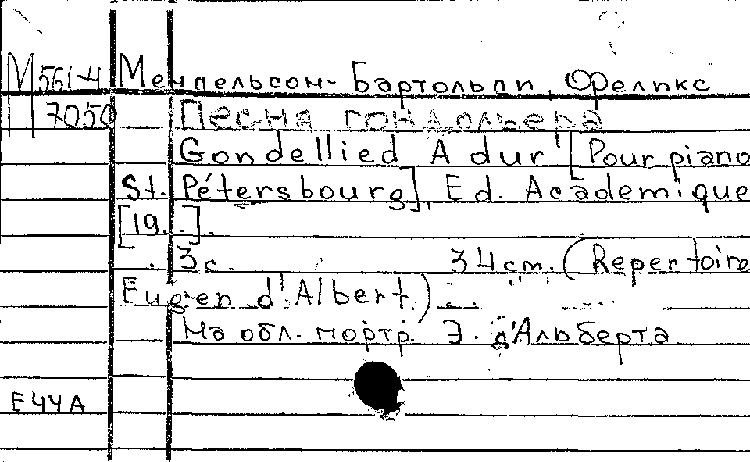 М561-4 Мендельсон-Бартольди, Феликс
7050 Песня гондольера
Gondellied A dur [Pour piano
St. Pétersbourg], Ed. Academique
[19..].
3с. 34 cm. (Repertoire
Eugen d'Albert)
На обл. портр. Э. д'Альберта.
E44A